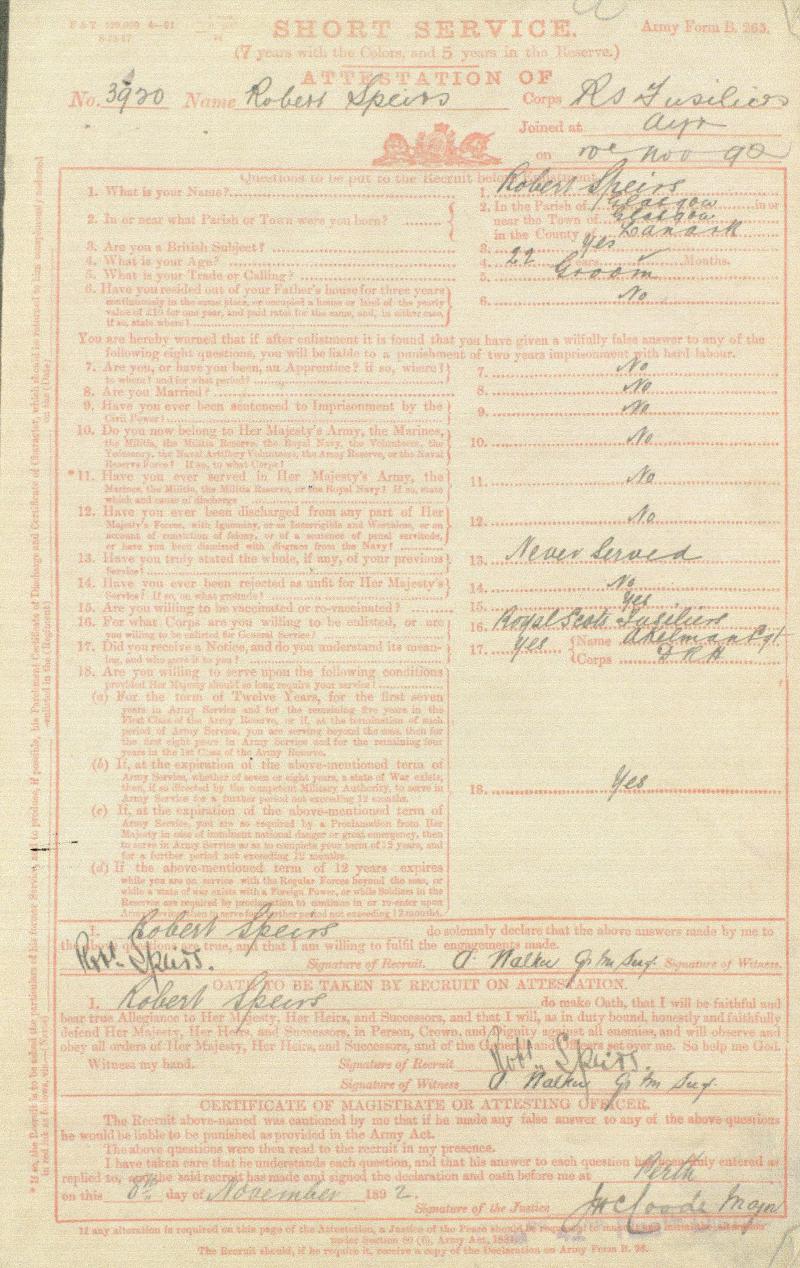 SHORT SERVICE.
Army Form B. 265.
(7 years with the Colors, and 5 years in the Reserve.)
ATTESTATION OF
No. 3920 Name Robert Speirs Corps Rl S Fusiliers
Joined at Ayr
on Nov 92
Questions to be put to the Recruit before Enlistment.
1. What is your Name? 1. Robert Speirs
2. In or near what Parish or Town were you born? 2. In the Parish of Glasgow in or
near the Town of Glasgow
in the County of Lanark
3. Are you a British Subject? 3. Yes
4. What is your Age? 4. 22 Years Months.
5. What is your Trade or Calling? 5. Groom
6. Have you resided out of your Father's house for three years 6. No
continuously in the same place, or occupied a house or land of the yearly
value of £10 for one year, and paid rates for the same, and, in either case,
if so, state where?
You are hereby warned that if after enlistment it is found that you have given a wilfully false answer to any of the
following eight questions, you will be liable to a punishment of two years imprisonment with hard labour.
7. Are you, or have you been, an Apprentice? if so, where? 7. No
to whom? and for what period?
8. Are you Married? 8. No
9. Have you ever been sentenced to Imprisonment by the 9. No
Civil Power?
10. Do you now belong to Her Majesty's Army, the Marines, 10. No
the Militia, the Militia Reserve, the Royal Navy, the Volunteers, the
Yeomanry, the Naval Artillery Volunteers, the Army Reserve, or the Naval
Reserve Force? If so, to what Corps?
*11. Have you ever served in Her Majesty's Army, the 11. No
Marines, the Militia, the Militia Reserve, or the Royal Navy? If so, state
which and cause of discharge
12. Have you ever been discharged from any part of Her 12. No
Majesty's Forces, with Ignominy, or as Incorrigible and Worthless, or on
account of conviction of felony, or of a sentence of penal servitude,
or have you been dismissed with disgrace from the Navy?
13. Have you truly stated the whole, if any, of your previous 13. Never Served
Service?
14. Have you ever been rejected as unfit for Her Majesty's 14. No
Service? If so, on what grounds?
15. Are you willing to be vaccinated or re-vaccinated? 15. Yes
16. For what Corps are you willing to be enlisted, or are 16. Royal Scots Fusiliers
you willing to be enlisted for General Service?
17. Did you receive a Notice, and do you understand its mean- 17. Yes Name Akelman Sgt
ing, and who gave it to you? Corps
18. Are you willing to serve upon the following conditions
provided Her Majesty should so long require your service?
(a) For the term of Twelve Years, for the first seven
years in Army Service and for the remaining five years in the
First Class of the Army Reserve, or if, at the termination of such
period of Army Service, you are serving beyond the seas, then for
the first eight years in Army Service and for the remaining four
years in the 1st Class of the Army Reserve.
(b) If, at the expiration of the above-mentioned term of
Army Service, whether of seven or eight years, a state of War exists,
then, if so directed by the competent Military Authority, to serve in
Army Service for a further period not exceeding 12 months. 18. Yes
(c) If, at the expiration of the above-mentioned term of
Army Service, you are so required by a Proclamation from Her
Majesty in case of imminent national danger or great emergency, then
to serve in Army Service so as to complete your term of 12 years, and
for a further period not exceeding 12 months.
(d) If the above-mentioned term of 12 years expires
while you are on service with the Regular Forces beyond the seas, or
while a state of war exists with a Foreign Power, or while Soldiers in the
Reserve are required by proclamation to continue in or re-enter upon
Army Service, then to serve for a further period not exceeding 12 months.
I, Robert Speirs do solemnly declare that the above answers made by me to
the above questions are true, and that I am willing to fulfil the engagements made.
Robt. Speirs. Signature of Recruit. J. Walker Signature of Witness.
OATH TO BE TAKEN BY RECRUIT ON ATTESTATION.
I, Robert Speirs do make Oath, that I will be faithful and
bear true Allegiance to Her Majesty, Her Heirs, and Successors, and that I will, as in duty bound, honestly and faithfully
defend Her Majesty, Her Heirs, and Successors, in Person, Crown, and Dignity against all enemies, and will observe and
obey all orders of Her Majesty, Her Heirs, and Successors, and of the Generals and Officers set over me. So help me God.
Witness my hand. Signature of Recruit Robt. Speirs.
Signature of Witness J. Walker
CERTIFICATE OF MAGISTRATE OR ATTESTING OFFICER.
The Recruit above-named was cautioned by me that if he made any false answer to any of the above questions
he would be liable to be punished as provided in the Army Act.
The above questions were then read to the recruit in my presence.
I have taken care that he understands each question, and that his answer to each question has been duly entered as
replied to, and the said recruit has made and signed the declaration and oath before me at Perth
on this 8th day of November 1892.
Signature of the Justice Major
If any alteration is required on this page of the Attestation, a Justice of the Peace should be requested to
under Section 80 (6), Army Act, 1881.
The Recruit should, if he require it, receive a copy of the Declaration on Army Form B.